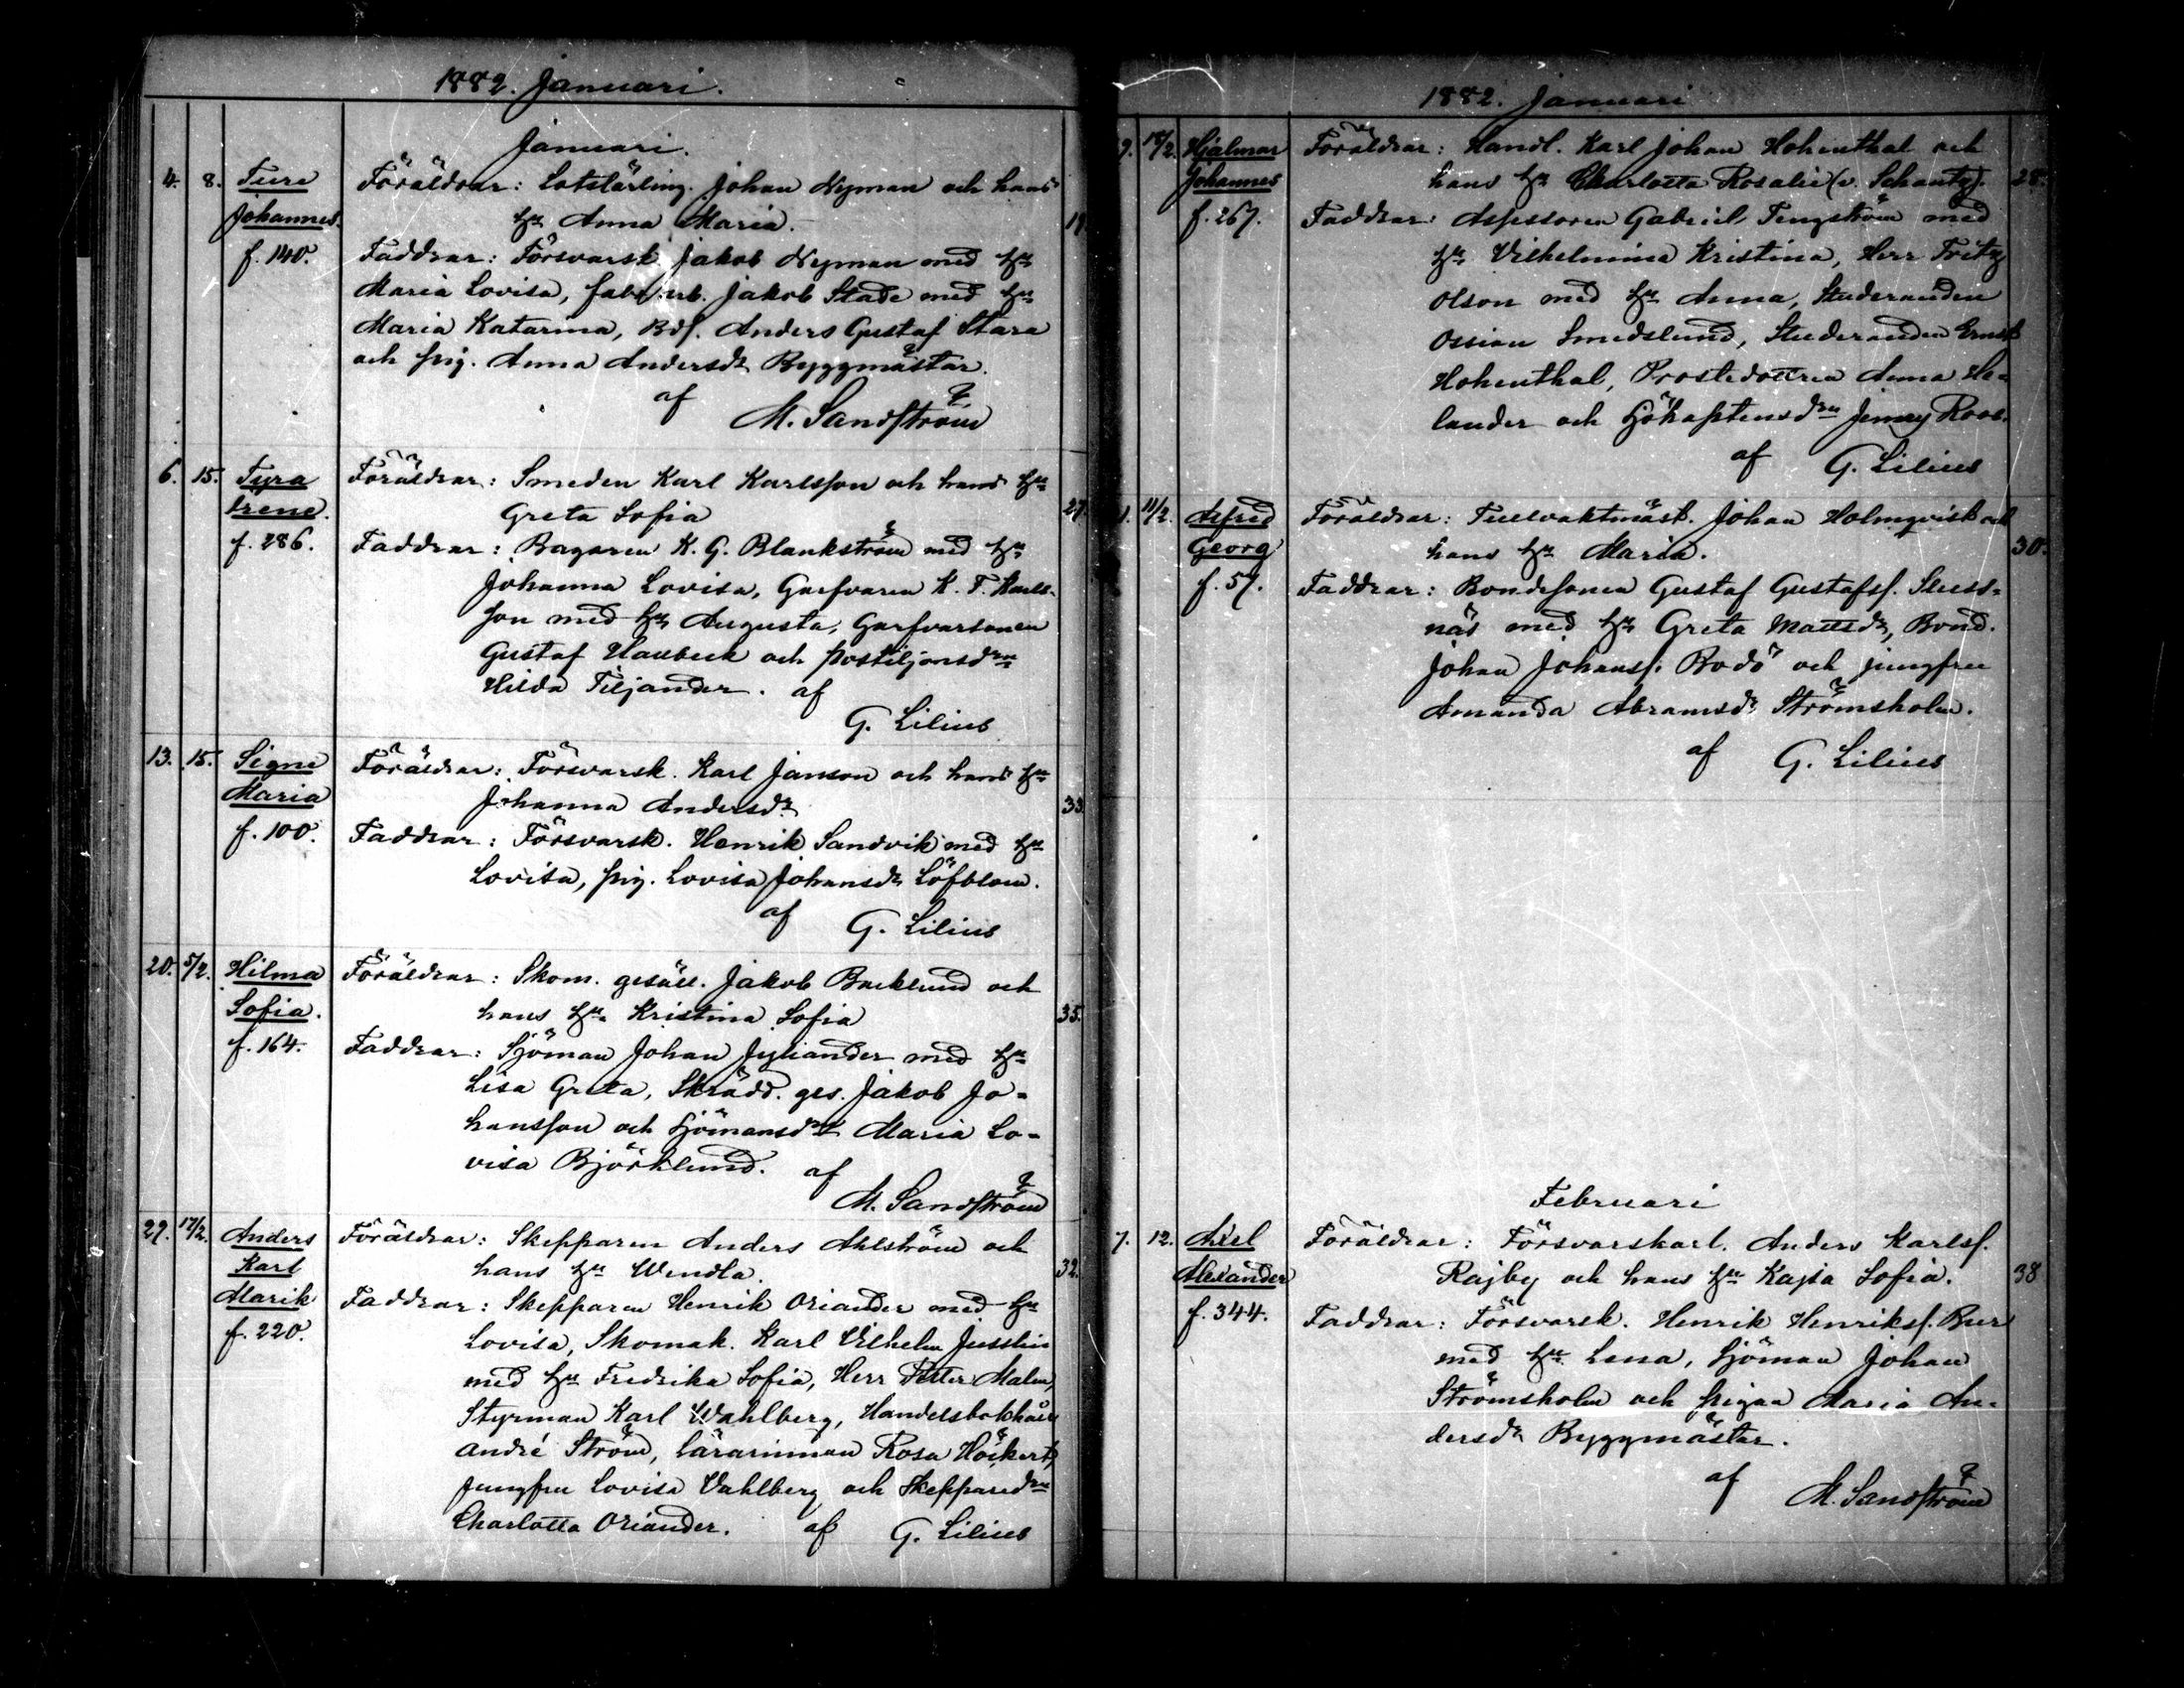 1882. Januari.
Januari.
4. 8. Ture Föräldrar: Lotslärling. Johan Nyman och hans
Johannes. hu Anna Maria. 19
f. 140. Faddrar: Försvarsk. Jakob Nyman med hu
Maria Lovisa, fabr. arb. Jakob Stade med hu
Maria Katarina, Bds. Anders Gustaf Stara
och pig. Anna Andersdr Byggmästar.
af M. Sandström
6. 15. Tyra Föräldrar: Smeden Karl Karlsson och hans hu
Irene. Greta Sofia 27
f. 286. Faddrar: Bagaren K. G. Blankström med hu
Johanna Lovisa, Garfvaren K. F. Karls-
son med hu Augusta, Garfvarsonen
Gustaf Haubeck och postiljonsdrn
Hilda Tiljander. af
G. Lilius
13. 15. Signe Föräldrar: Försvarsk. Karl Janson och hans hu
Maria Johanna Andersdr 33.
f. 100. Faddrar: Försvarsk. Henrik Sandvik med hu
Lovisa, pig. Lovisa Johansdr Löfblom.
af G. Lilius
20. 5/2. Hilma Föräldrar: Skom. gesäll. Jakob Backlund och
Sofia. hans hu Kristina Sofia 35.
f. 164. Faddrar: Sjöman Johan Jyliander med hu
Lisa Greta, Skrädd. ges. Jakob Jo-
hansson och Sjömansdr Maria Lo-
visa Björklund. af
M. Sandström
29. 12/2. Anders Föräldrar: Skepparen Anders Ahlström och
Karl hans hu Wendla. 32.
Alarik Faddrar: Skepparen Henrik Oriander med hu
f. 220. Lovisa, Skomak. Karl Vilhelm Jusslin
med hu Fredrika Sofia, Herr Petter Malm,
Styrman Karl Wahlberg, Handelsbokhåll
André Ström, Lärarinnan Rosa Höckert,
Jungfru Lovisa Vahlberg och Skepparedrn
Charlotta Oriander. af G. Lilius
1882. Januari
9. 18/2. Hjalmar Föräldrar: Handl. Karl Johan Hohenthal och
Johannes hans hu Charlotta Rosalie (v. Schantz). 28.
f. 267. Faddrar: Assessoren Gabriel Tengström med
hu Vilhelmina Kristina, Herr Fritz
Olson med hu Anna, Studeranden
Ossian Smedslund, Studeranden Ernst
Hohenthal, Prostedottren Anna He-
lander och Sjökaptensdrn Jenny Roos.
af G. Lilius
11/2. Alfred Föräldrar: Tullvaktmäst. Johan Holmqvist och
Georg hans hu Maria. 30.
f. 57. Faddrar: Bondesonen Gustaf Gustafss. Sluss-
näs med hu Greta Mattsdr, Bond.
Johan Johanss. Bodö och jungfru
Amanda Abramsdr Strömsholm.
af G. Lilius
Februari
7. 12. Axel Föräldrar: Försvarskarl. Anders Karlss.
Alexander Rajby och hans hu Kajsa Sofia. 38
f. 344. Faddrar: Försvarsk. Henrik Henrikss. Bur
med hu Lena, Sjöman Johan
Strömsholm och pigan Maria An-
dersdr Byggmästar.
af M. Sandström